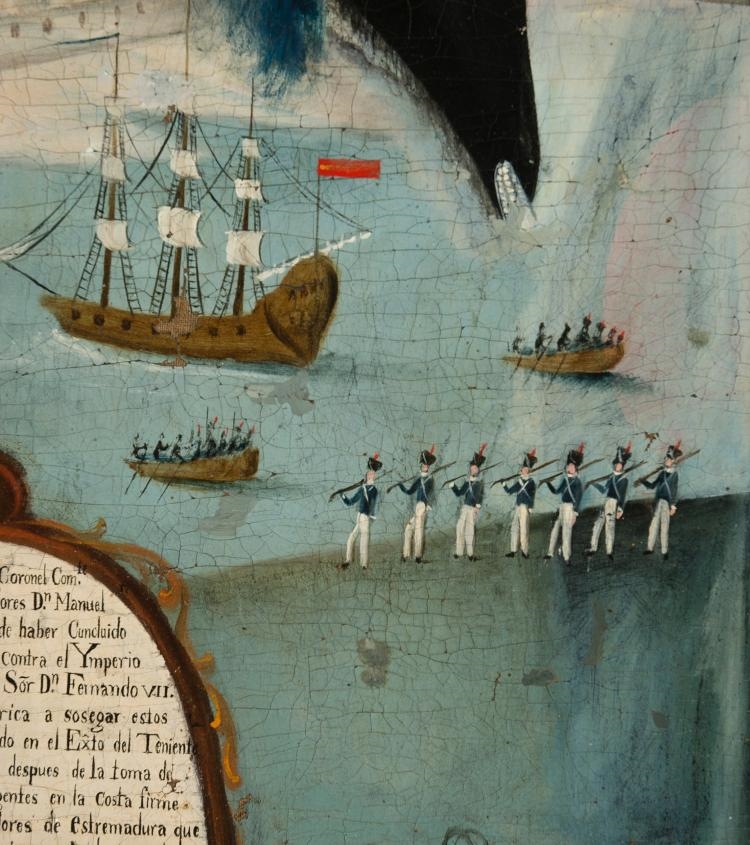 Coronel Com.te
ores D.n Manuel
de haber Cuncluido
contra el Ymperio
Sõr D.n Fernando VII.
rica a sosegar estos
do en el Exto del Teniente
despues de la toma de
entes en la Costa firme
lores de estremadura que